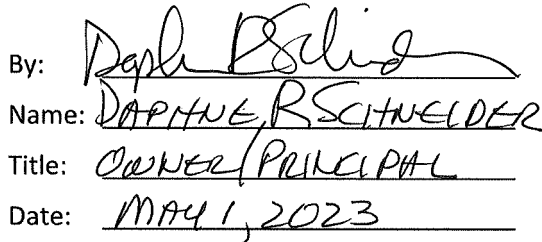 By: Daphne R Schneider
Name: DAPHNE R SCHNEIDER
Title: OWNER/PRINCIPAL
Date: MAY 1, 2023